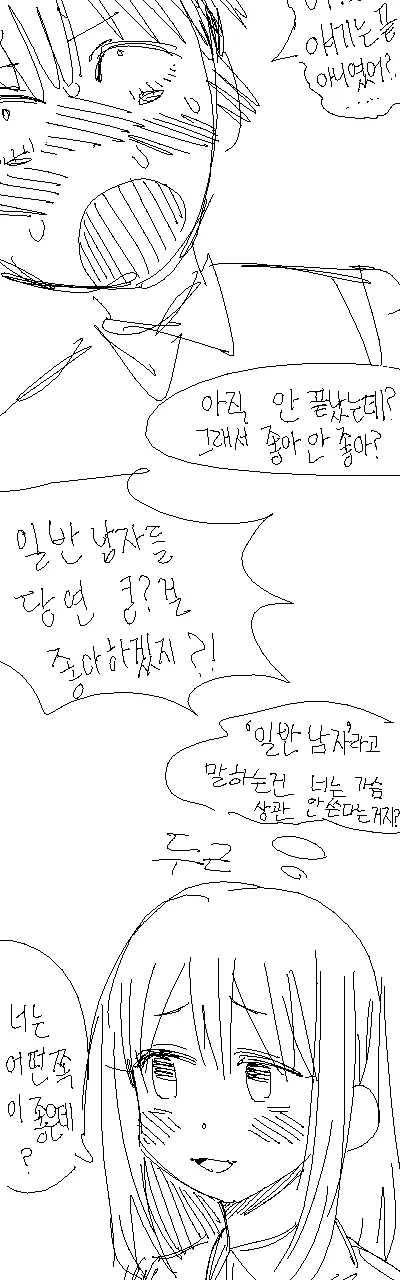 얘기는 끝
아니였어?
....
아직 안 끝났는데?
그래서 좋아 안 좋아?
일반 남자들
당연 큰?걸
좋아하겠지?!
'일반 남자'라고
말하는건 너는 가슴
상관 안쓴다는거지?
두근
너는
어떤쪽
이 좋은데
?